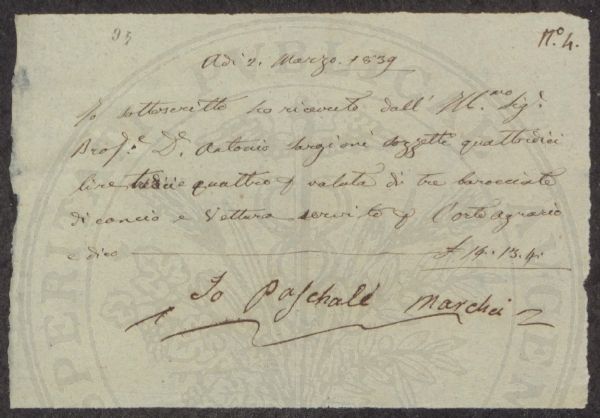 94
Nº. 4.
Adì 2. Marzo. 1839
Io sottoscritto ho ricevuto dall' Ill.mo Sig.
Prof.e D.e Antonio Targioni Tozzetti quattridici
lire tredici e quattro p valuta di tre barocciate
di concio e Vettura servito p l'orto agrario
e dico £ 14. 13. 4.
Io Paschale Marchi